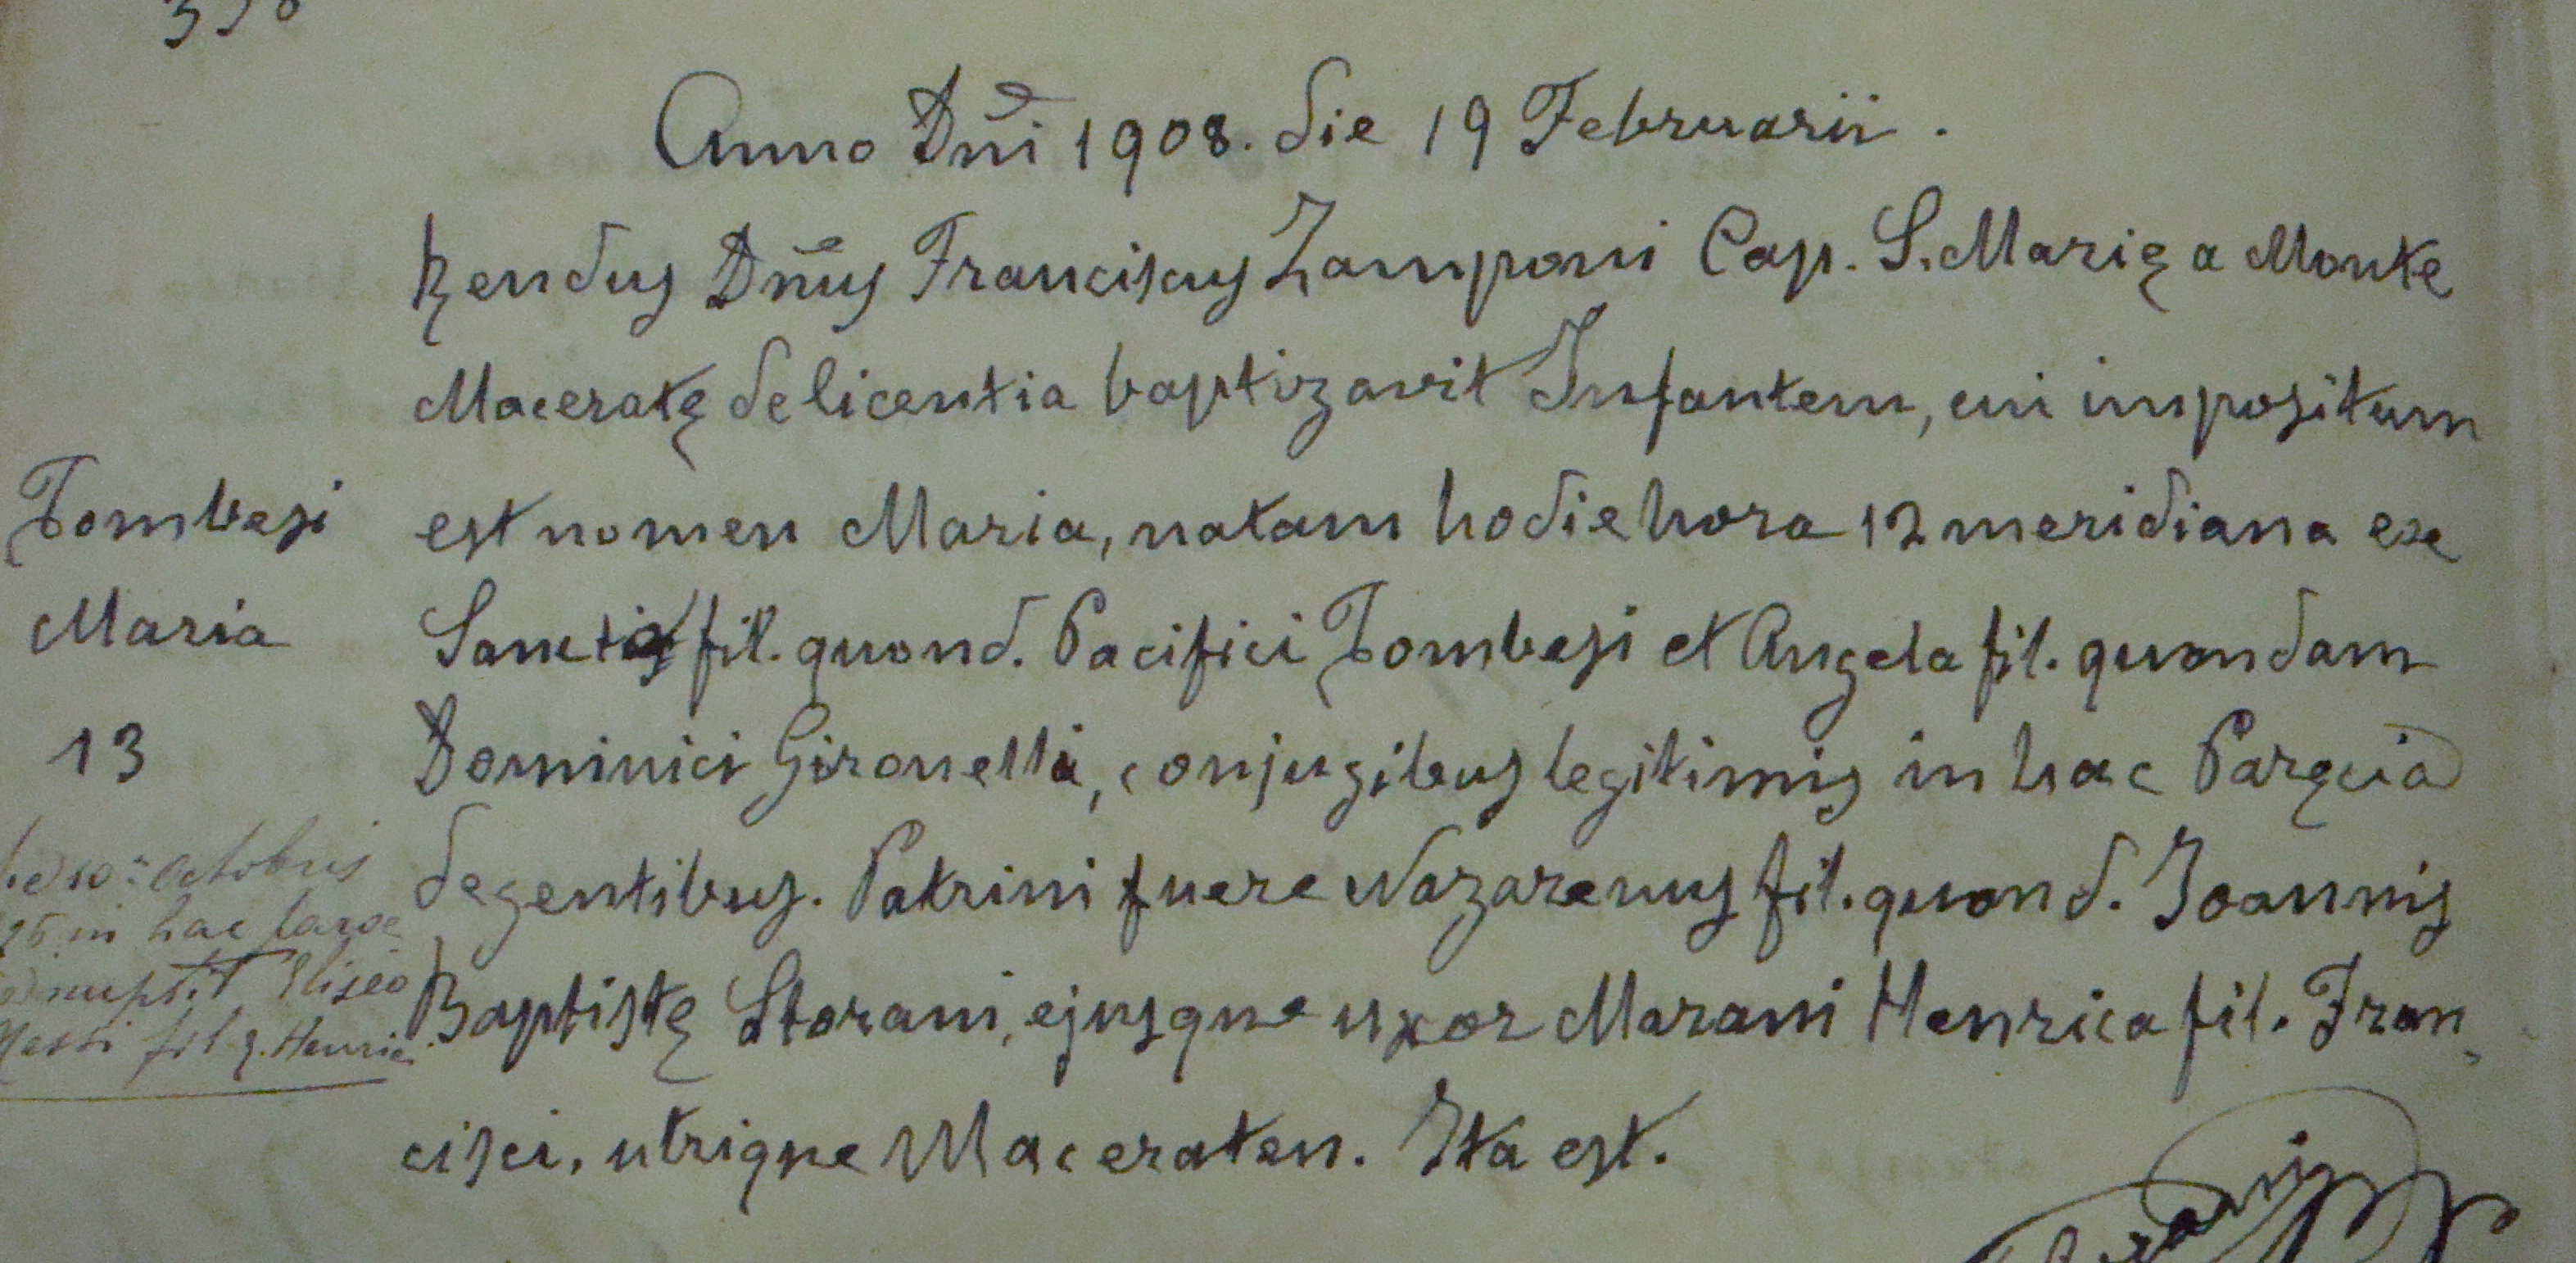 Anno Dñi 1908. die 19 Februarii.
Rendus Dñus Franciscus Zamponi Cap. S. Marię a Monte
Maceratę de licentia baptizavit Infantem, cui impositum
est nomen Maria, natam hodie hora 12 meridiana ex
fil. quond. Pacifici Tombesi et Angela fil. quondam
Dominici Gironelli, conjugibus legitimis in hac Paręcia
degentibus. Patrini fuere Nazarenus fil. quond. Joannis
Baptistę Storani, ejusque uxor Marani Henrica fil. Fran
cisci, utrique Maceraten. Ita est.
Tombesi
Maria
13
10 Octobris
in hac
nupsit Eliseo
fil q. Henrici